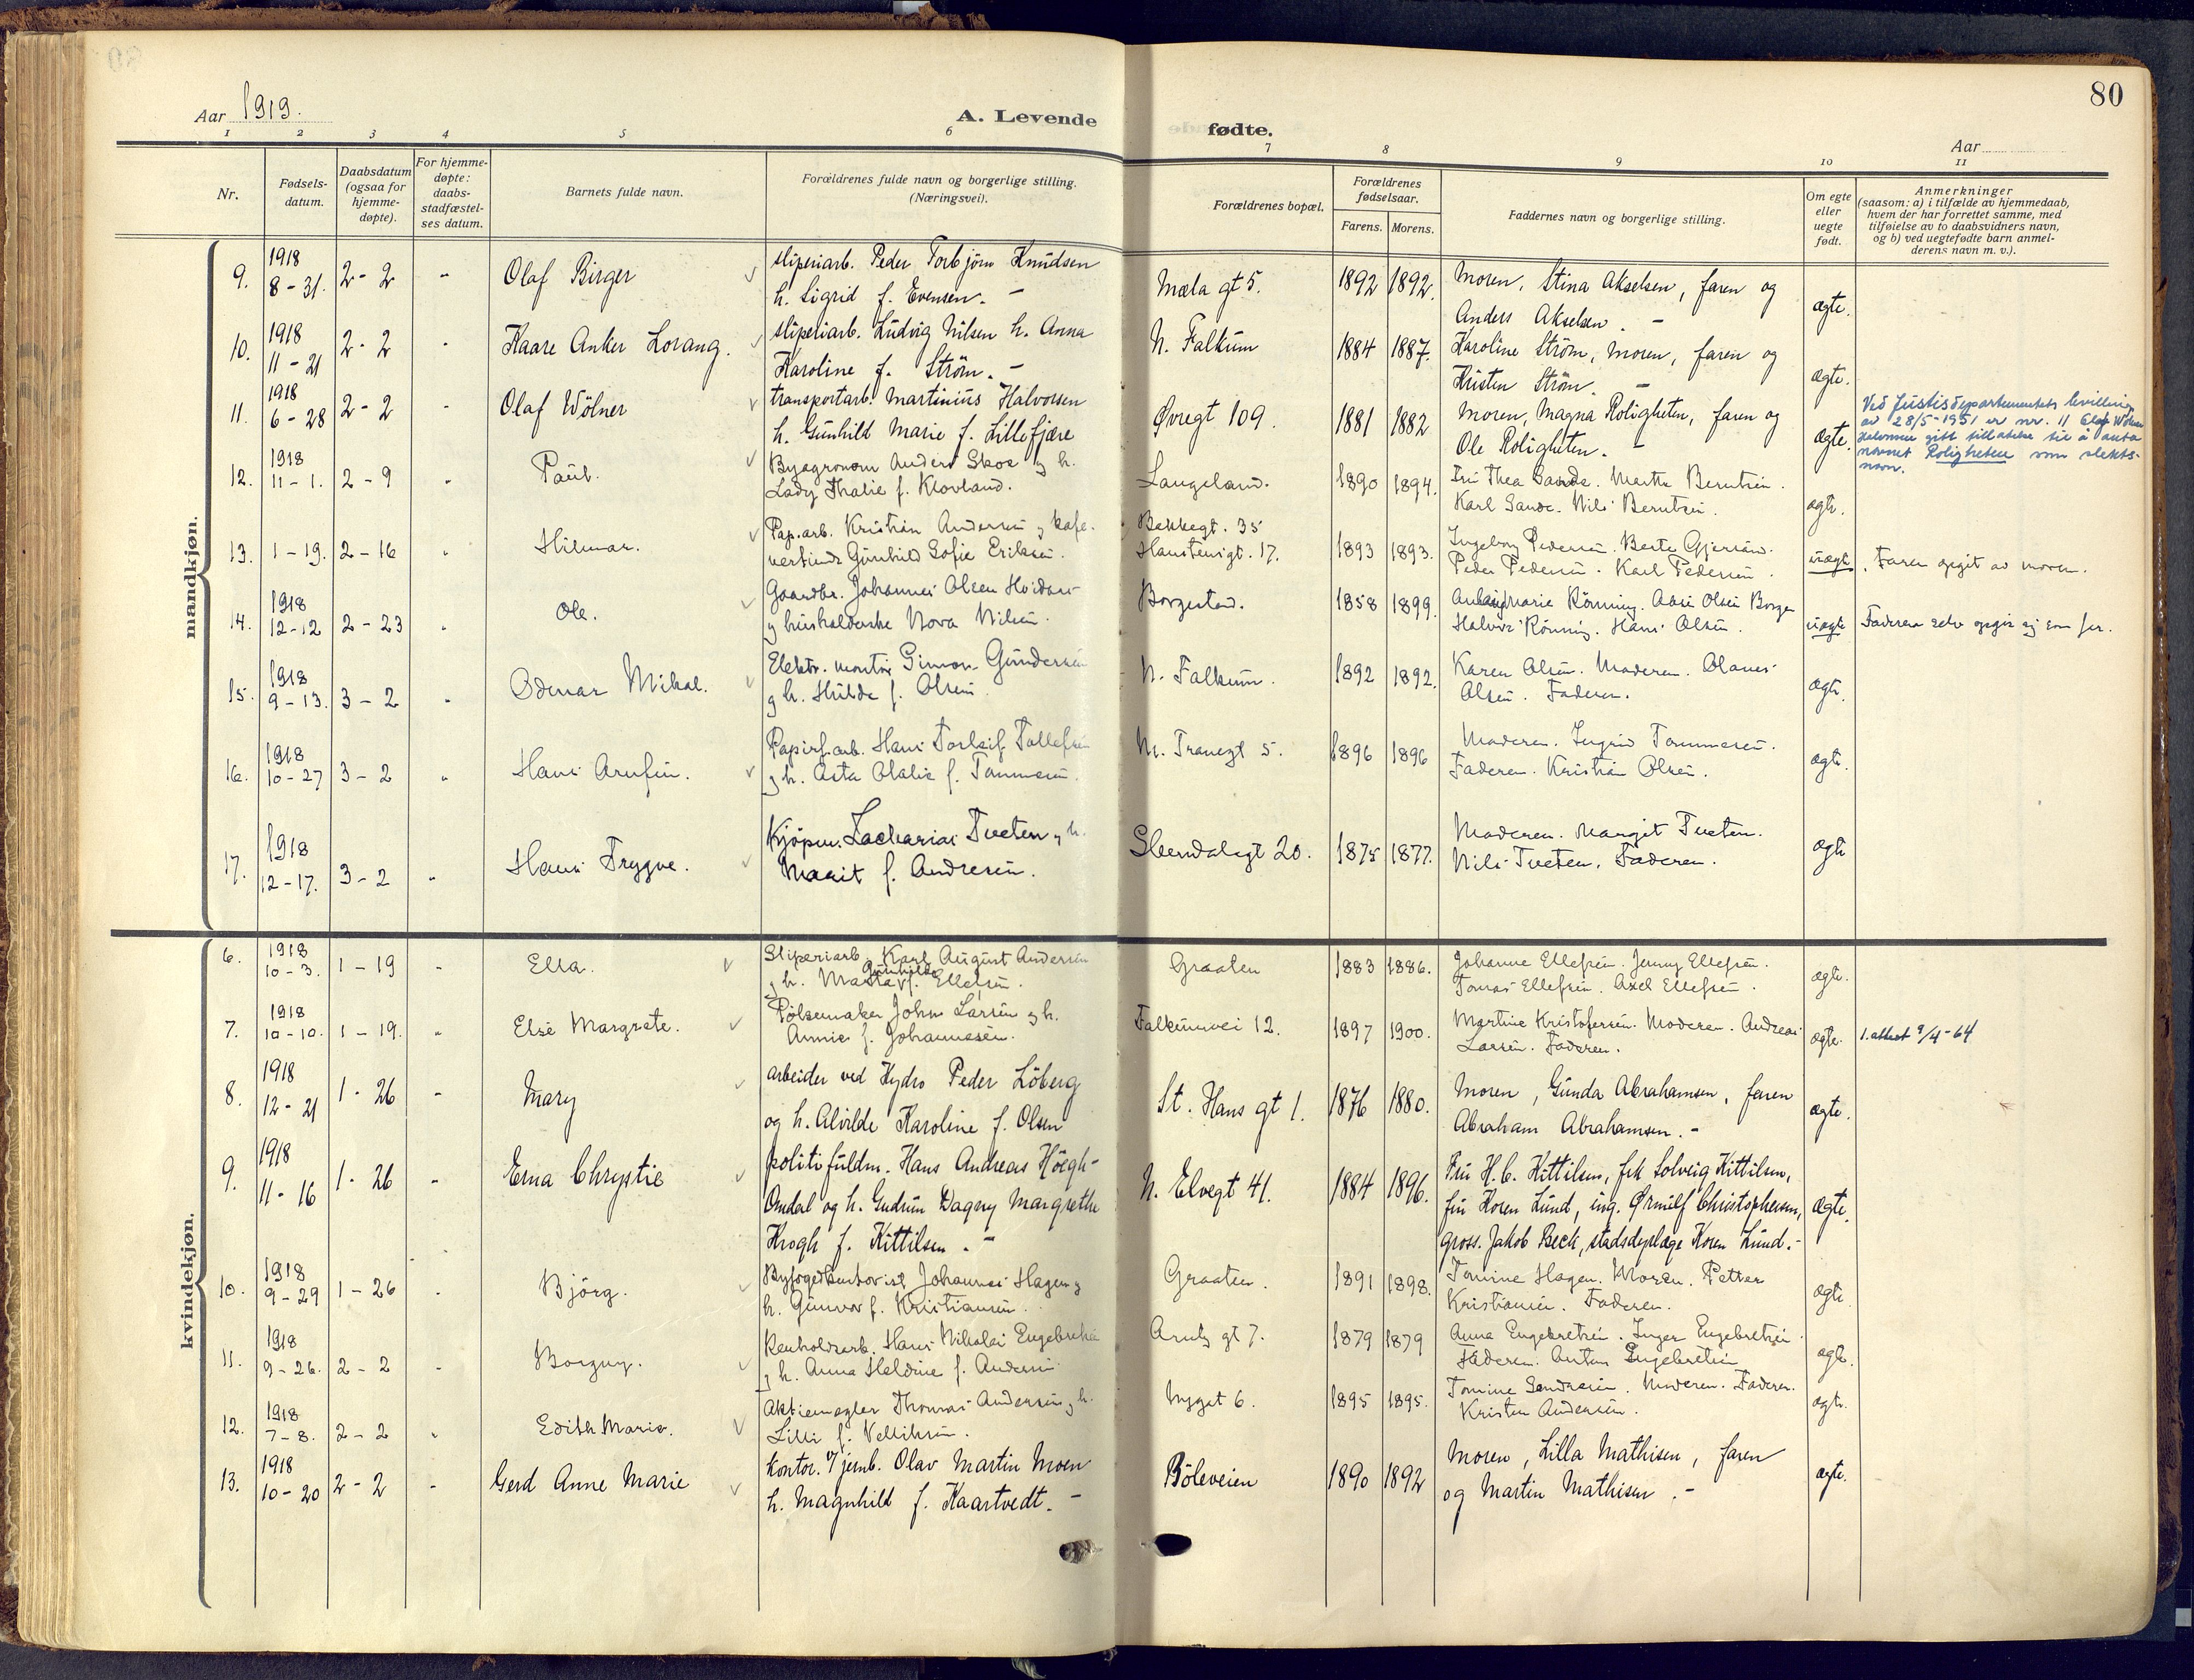 80
Aar 1919.
A. Levende
fødte.
Aar
1 2 3 4 5 6 7 8 9 10 11
Nr.
Fødsels-
datum.
Daabsdatum
(ogsaa for
hjemme-
døpte).
For hjemme-
døpte:
daabs-
stadfæstel-
ses datum.
Barnets fulde navn.
Forældrenes fulde navn og borgerlige stilling.
(Næringsvei).
Forældrenes bopæl.
Forældrenes
fødselsaar.
Farens. Morens.
Faddernes navn og borgerlige stilling.
Om egte
eller
uegte
født.
Anmerkninger
(saasom: a) i tilfælde av hjemmedaab,
hvem der har forrettet samme, med
tilføielse av to daabsvidners navn,
og b) ved uegtefødte barn anmel-
derens navn m. v.).
mandkjøn.
9. 1918 8-31. 2-2 - Olaf Birger
sliperiarb. Peder Torbjörn Knudsen
h. Sigrid f. Evensen. -
Mæla gt 5. 1892 1892.
Moren, Stina Akselsen, faren og
Anders Akselsen. - ægte.
10. 1918 11-21 2-2 - Kaare Anker Lorang.
sliperiarb. Ludvig Nilsen h. Anna
Karoline f. Ström. -
N. Falkum 1884 1887.
Karoline Ström, moren, faren og
Kristen Ström. - ægte.
11. 1918 6-28 2-2 - Olaf Wölner
transportarb. Martinius Halvorsen
h. Gunhild Marie f. Lillefjære
Øvregt 109. 1881 1882
Moren, Magna Roligheten, faren og
Ole Roligheten. - ægte.
Ved Justisdepartementets bevilling
av 28/5-1951 er nr. 11 Olaf Wölner
Halvorsen gitt tillatelse til å anta
navnet Roligheten som slekts-
navn.
12. 1918 11-1. 2-9 - Paul.
Byagronom Anders Skoe og h.
Lady Thalie f. Klovland.
Langeland. 1890 1894.
Fru Thea Sande. Marthe Berntsen.
Karl Sande. Nils Berntsen. ægte.
13. 1-19. 2-16 - Hilmar.
Pap.arb. Kristian Andersen og kafe-
vertinde Gunhild Sofie Eriksen.
Bekkegt. 35
Hansteensgt. 17. 1893 1893.
Ingeborg Pedersen. Berte
Peder Pedersen. Karl Pedersen. uægte. Faren opgit av moren.
14. 1918 12-12 2-23 - Ole.
Gaardbr. Johannes Olsen
og husholderske Nora Nilsen.
Borgestad. 1858 1899.
Marie Rönning. Olsen Borge
Halvor Rönning. Hans Olsen. uægte Faderen selv opgir sig som far.
15. 1918 9-13. 3-2 - Odmar Mikal.
Elektr. montör Simon Gundersen
og h. Hulda f. Olsen.
N. Falkum. 1892 1892.
Karen Olsen. Moderen. Olaves
Olsen. Faderen. ægte.
16. 1918 10-27 3-2 - Hans Arnfin.
Papirf.arb. Hans Torleif Tollefsen
og h. Asta Olalie f. Tommesen.
N. Tranegt 5. 1896 1896
Moderen. Ingrid Tommesen.
Faderen. Kristian Olsen. ægte.
17. 1918 12-17. 3-2 - Hans Trygve.
Kjöpm. Zacharias Tveten og h.
Marit f. Andresen.
Slemdalsgt 20. 1875 1877.
Moderen. Margit Tveten.
Nils Tveten. Faderen. ægte
kvindekjøn.
6. 1918 10-3. 1-19 - Ella.
Sliperiarb. Karl August Andersen
og h. Marta Gunhilde f. Ellefsen.
Graaten 1883 1886.
Johanne Ellefsen. Jenny Ellefsen.
Tomas Ellefsen. Axel Ellefsen. ægte.
7. 1918 10-10. 1-19. - Else Margrete.
Pölsemaker John Larsen og h.
Annie f. Johannesen.
Falkumvei 12. 1897 1900.
Martine Kristofersen. Moderen. Andreas
Larsen. Faderen. ægte. 1. attest 9/4-64
8. 1918 12-21 1-26 - Mary
arbeider ved Hydro Peder Löberg
og h. Alvilde Karoline f. Olsen
St. Hans gt 1. 1876 1880.
Moren, Gunda Abrahamsen, faren
Abraham Abrahamsen. - ægte.
9. 1918 11-16 1-26 - Erna Chrystie
politifuldm. Hans Andreas Höegh-
Omdal og h. Gudrun Dagny Margrethe
Krogh f. Kittilsen. -
N. Elvegt 41. 1884 1896.
Fru H. C. Kittilsen, frk Solveig Kittilsen,
fru Koren Lund, ing. Ørnulf Christophersen,
gross. Jakob Beck, stadsdyrlæge Koren Lund. - ægte.
10. 1918 9-29 1-26 - Bjórg.
Byfogedkontorist Johannes Hagen og
h. Gunvor f. Kristiansen.
Graaten. 1891 1898.
Tomine Hagen. Moren. Petter
Kristiansen. Faderen. ægte
11. 1918 9-26. 2-2 - Borgny.
Renholdsarb. Hans Nikolai Engebretsen
og h. Anna Heldine f. Andersen
Arntz gt 7. 1879 1879
Anna Engebretsen. Inger Engebretsen
Faderen. Anton Engebretsen ægte.
12. 1918 7-8. 2-2 - Edith Marie.
Aktiemegler Thomas Andersen og h.
Lilli f.
Nygt 6. 1895 1895.
Tomine Moderen. Faderen.
Kristen Andersen. ægte.
13. 1918 10-20 2-2 - Gerd Anne Marie
kontor. v/ jernb. Olav Martin Moen
h. Magnhild f. Kaartvedt. -
Böleveien 1890 1892
Moren, Lilla Mathisen, faren
og Martin Mathisen. - ægte.